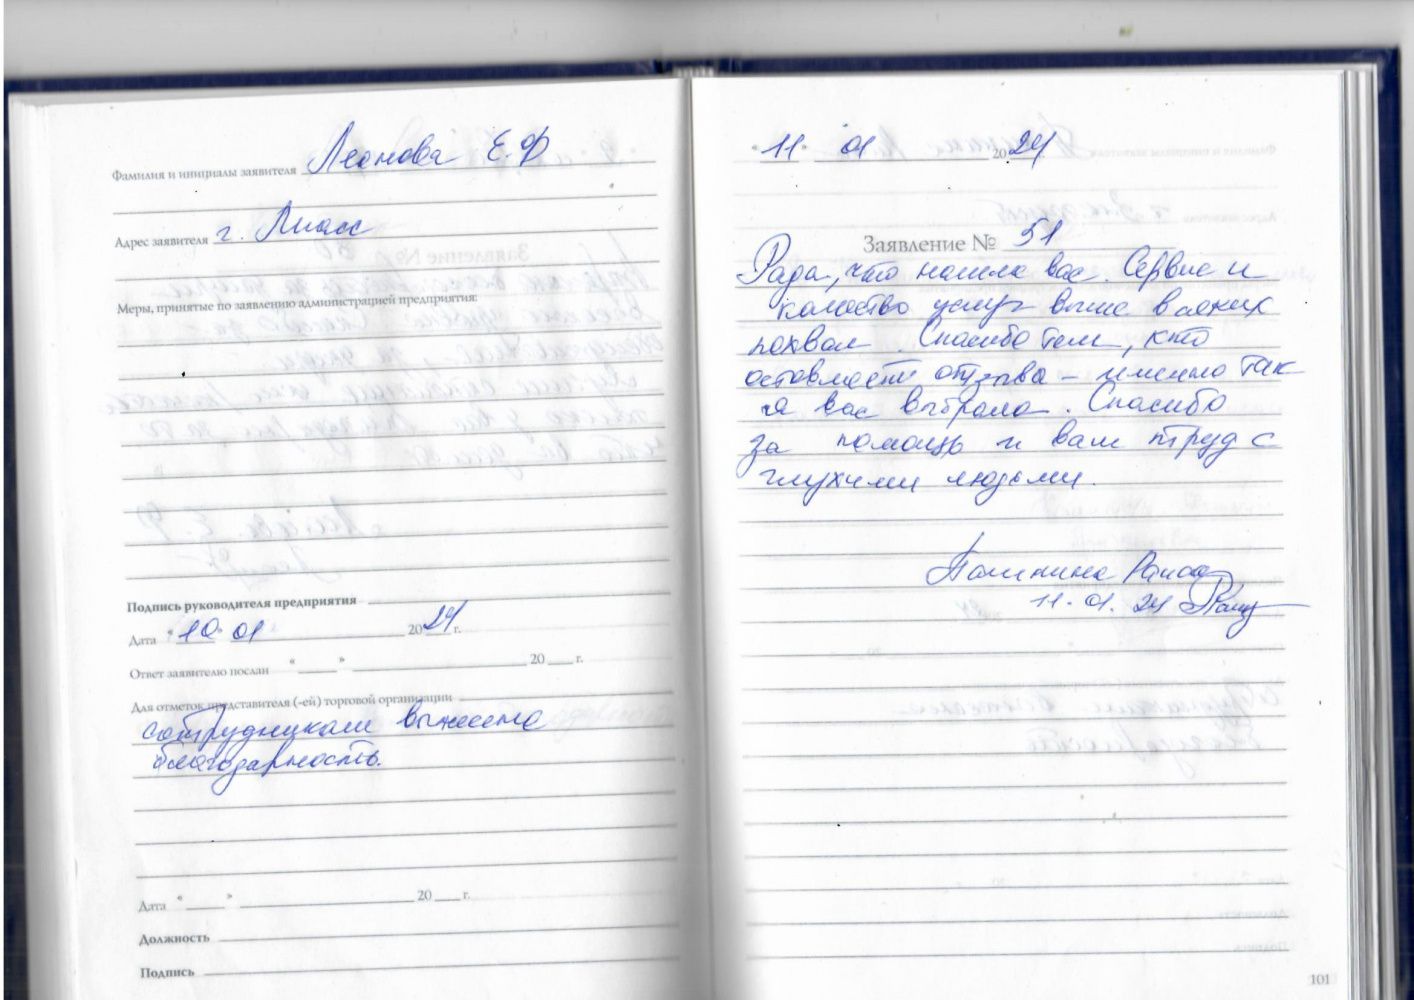 Фамилия и инициалы заявителя Леонова Е.Ф
Адрес заявителя г. Миасс
Меры, принятые по заявлению администрацией предприятия:
Подпись руководителя предприятия
Дата "10" 01 2024 г.
Ответ заявителю послан " " 20 г.
Для отметок представителя (-ей) торговой организации
сотрудникам вынесена
благодарность.
Дата " " 20 г.
Должность
Подпись
"11" 01 2024
Заявление № 51
Рада, что нашла вас. Сервис и
качество услуг выше всяких
похвал. Спасибо тем, кто
оставляет отзывы – именно так
я вас выбрала. Спасибо
за помощь и вам труд с
глухими людьми.
11.01.24
101